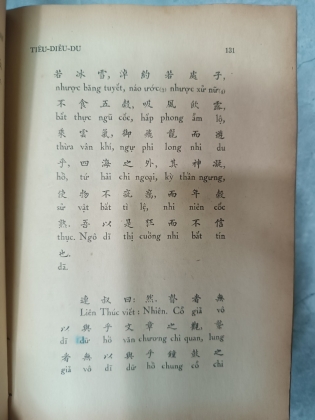 TIÊU-DIÊU-DU 131
若 冰 雪, 淖 約 若 處 子,
nhược băng tuyết, nào ước(2) nhược sử nữ(3)
不 食 五 穀, 吸 風 飲 露,
bất thực ngũ cốc, hấp phong ẩm lộ,
乘 雲 氣, 御 飛 龍 而 遊
thừa vân khí, ngự phi long nhi du
乎, 四 海 之 外, 其 神 凝,
hồ, tứ hải chi ngoại, kỳ thần ngưng,
使 物 不 疵 癘, 而 年 穀
sử vật bất tì lệ, nhi niên cốc
熟. 吾 以 是 狂 而 不 信
thục. Ngô dĩ thị cuồng nhi bất tín
也.
dã.
連 叔 曰: 然. 瞽 者 無
Liên Thúc viết: Nhiên. Cổ giả vô
以 與 乎 文 章 之 觀, 聾
dĩ dữ hồ văn chương chi quan, lung
者 無 以 與 乎 鐘 鼓 之
giả vô dĩ dữ hồ chung cổ chi